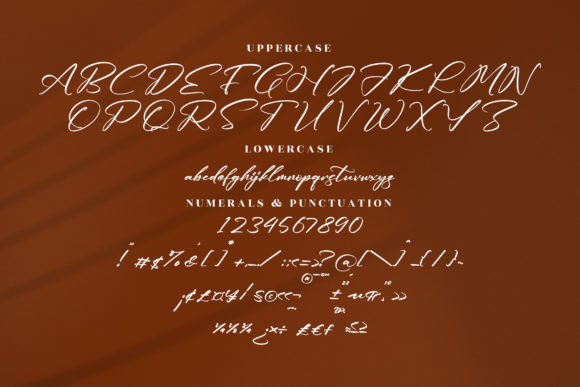 UPPERCASE
ABCDEFGHIJKLMN
OPQRSTUVWXYZ
LOWERCASE
abcdefghijklmnopqrstuvwxyz
NUMERALS & PUNCTUATION
1234567890
! " # $ % & ( ) * + , - . / : ; < = > ? @ [ \ ] ^ _ { / } ~
¡ ¢ £ ¤ ¥ § © «
¼ ½ ¾ ¿ × ÷